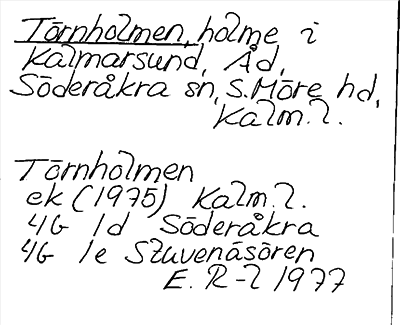 Törnholmen, holme i
Kalmarsund, Åd,
Söderåkra sn, S. Möre hd,
Kalm. l.
Törnholmen
ek (1975) Kalm. l.
4G 1d Söderåkra
4G 1e Stuvenäsören
E. R-l 1977